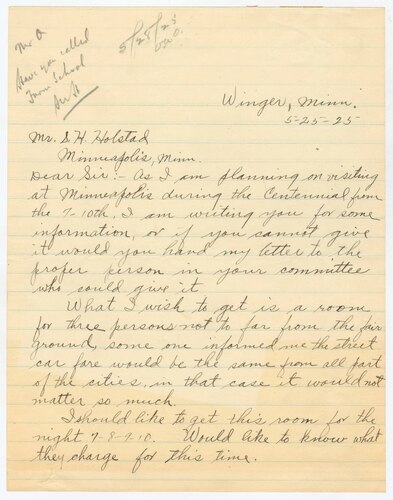 Mr O
Have you called
from School
5/28/25
Winger, Minn.
5-25-25
Mr. S. H. Holstad
Minneapolis, Minn.
Dear Sir:- As I am planning on visiting
at Minneapolis during the Centennial from
the 7-10th, I am writing you for some
information, or if you cannot give
it would you hand my letter to the
proper person in your committee
who sould give it.
What I wish to get is a room
for three persons not to far from the fair
ground, some one informed me the street
car fare would be the same from all part
of the cities, in that case it would not
matter so much.
I should like to get this room for the
night 7-8-9-10. Would like to know what
they charge for this time.